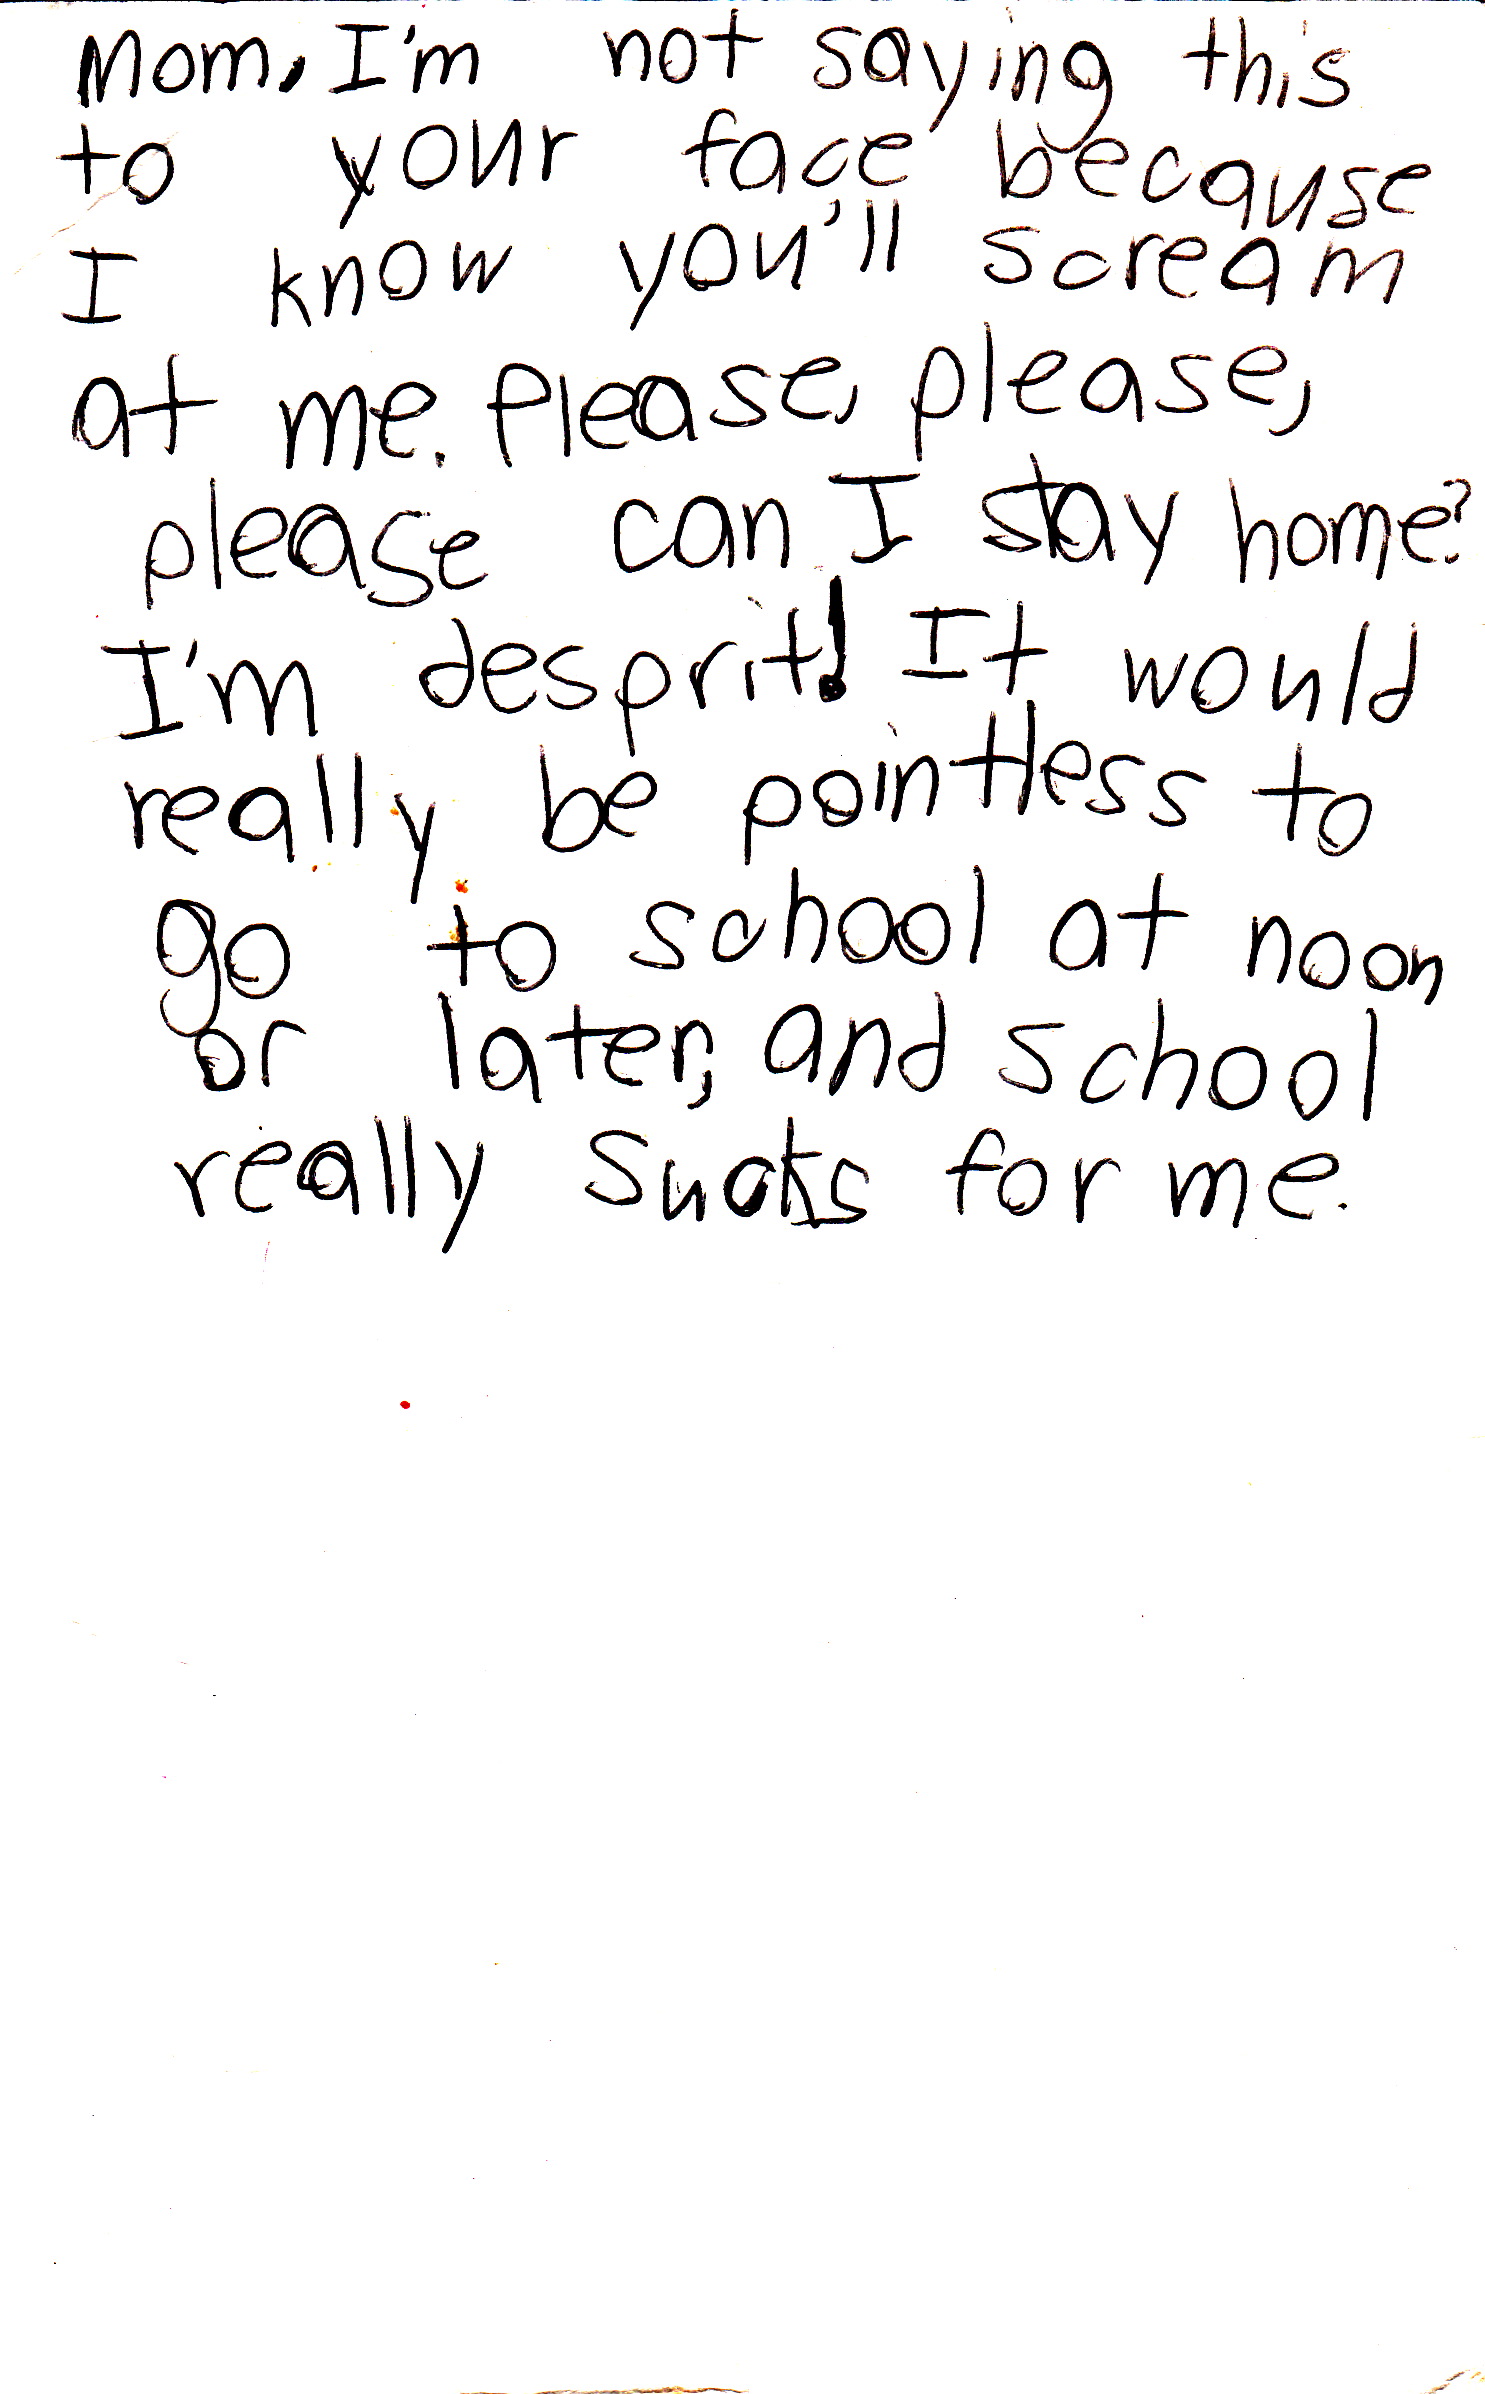 Mom, I'm not saying this
to your face because
I know you'll scream
at me. Please, please,
please can I stay home?
I'm desprit! It would
really be pointless to
go to school at noon
or later, and school
really sucks for me.